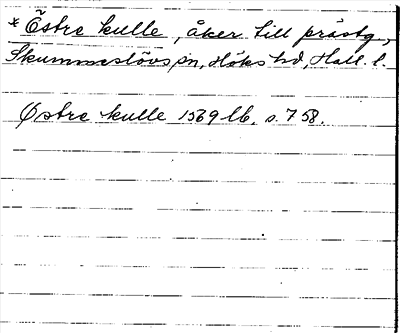 * Östre kulle, åker till prästg.,
Skummeslövs sn, Höks hd, Hall. l.
Østre kulle 1569 lb. s. 758.